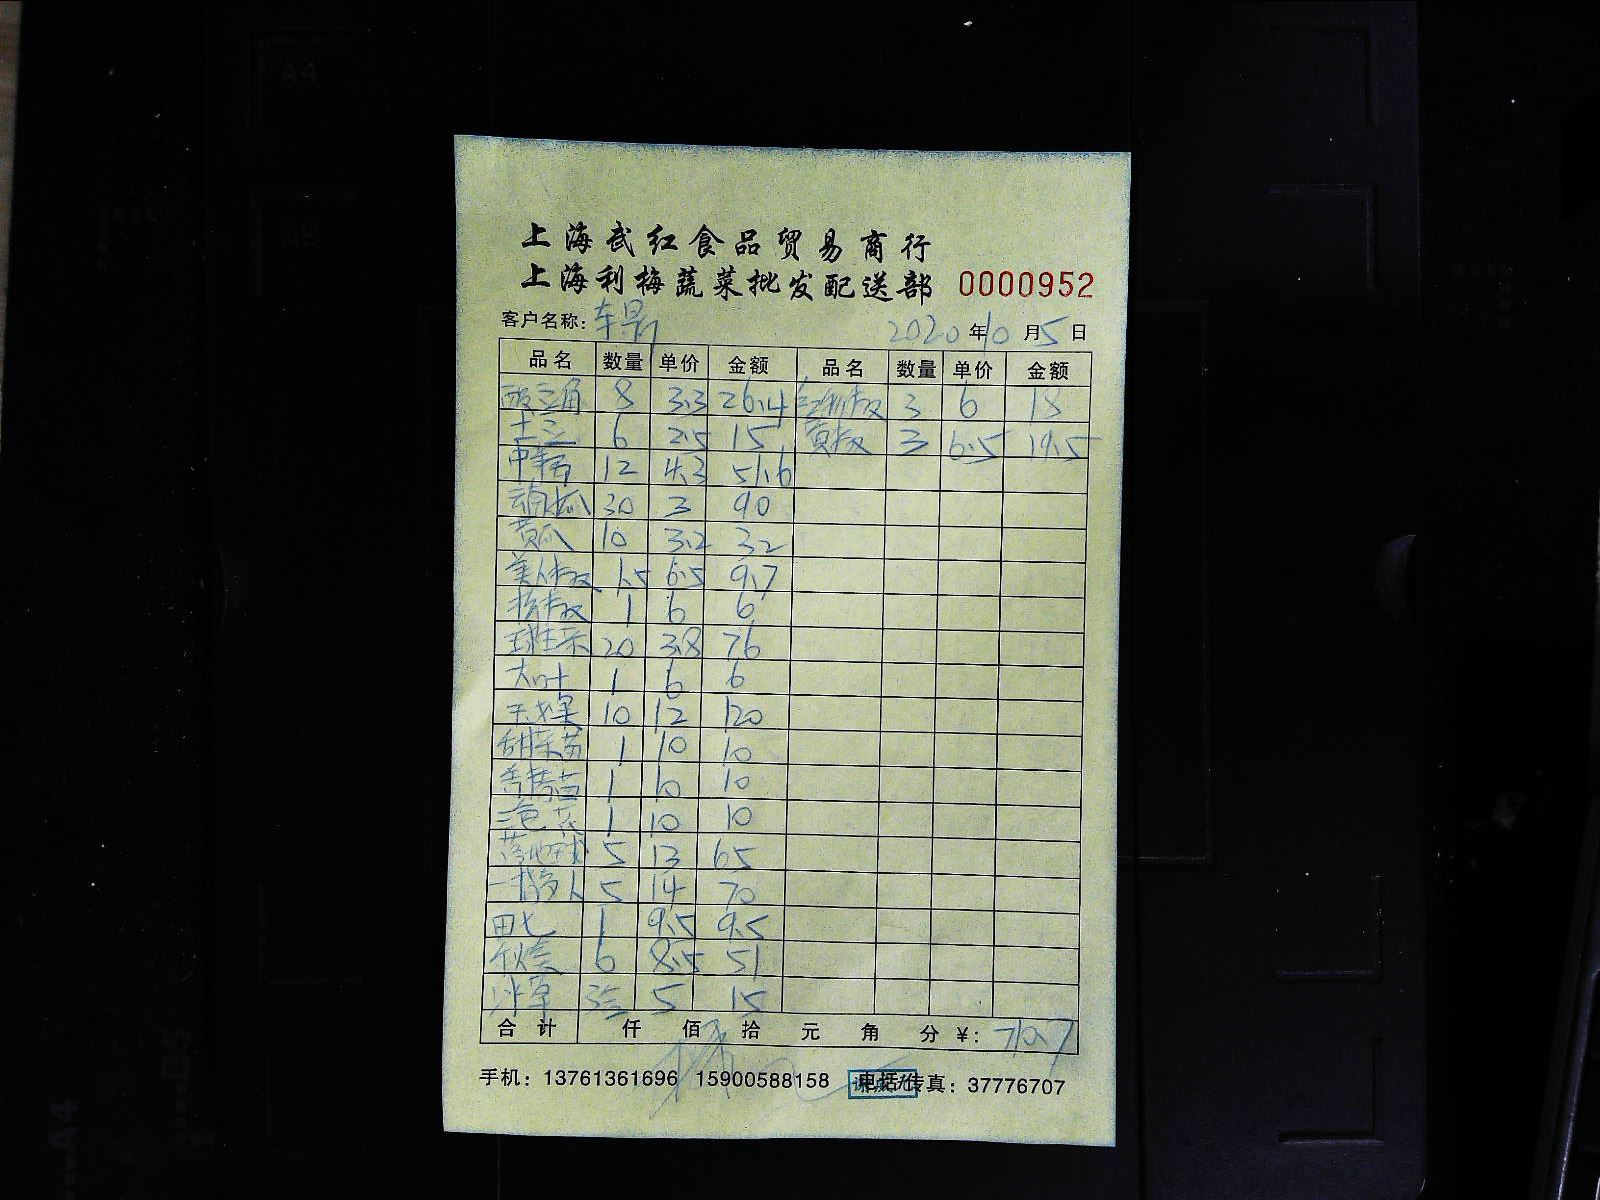 上海武红食品贸易商行
上海利梅蔬菜批发配送部 0000952
客户名称: 2020年10月5日
品名 数量 单价 金额 品名 数量 单价 金额
8 3.3 26.4 红椒 3 6 18
土豆 6 2.5 15 黄椒 3 6.5 19.5
12 4.3 51.6
30 3 90
黄瓜 10 3.2 32
美人椒 1.5 6.5 9.7
尖椒 1 6 6
球生菜 20 3.8 76
大叶 1 6 6
10 12 120
甜菜苗 1 10 10
1 10 10
三色花 1 10 10
5 13 65
5 14 70
田七 1 9.5 9.5
6 8.5 51
冰草 3盒 5 15
合计 仟 佰 拾 元 角 分 ¥:
手机: 13761361696 15900588158 电话/传真: 37776707